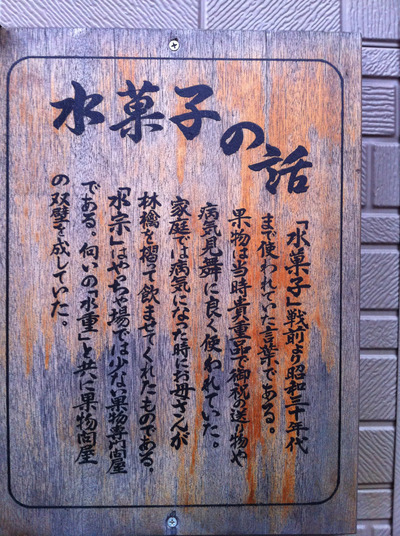 水菓子の話
「水菓子」戦前より昭和三十年代
まで使われていた言葉である。
果物は当時貴重品で御祝の送り物や
病気見舞に良く使われていた。
家庭では病気になった時にお母さんが
林檎を摺って飲ませてくれたものである。
「水宗」はやっちゃ場では少ない果物専門問屋
である。向いの「水重」と共に果物問屋
の双璧を成していた。